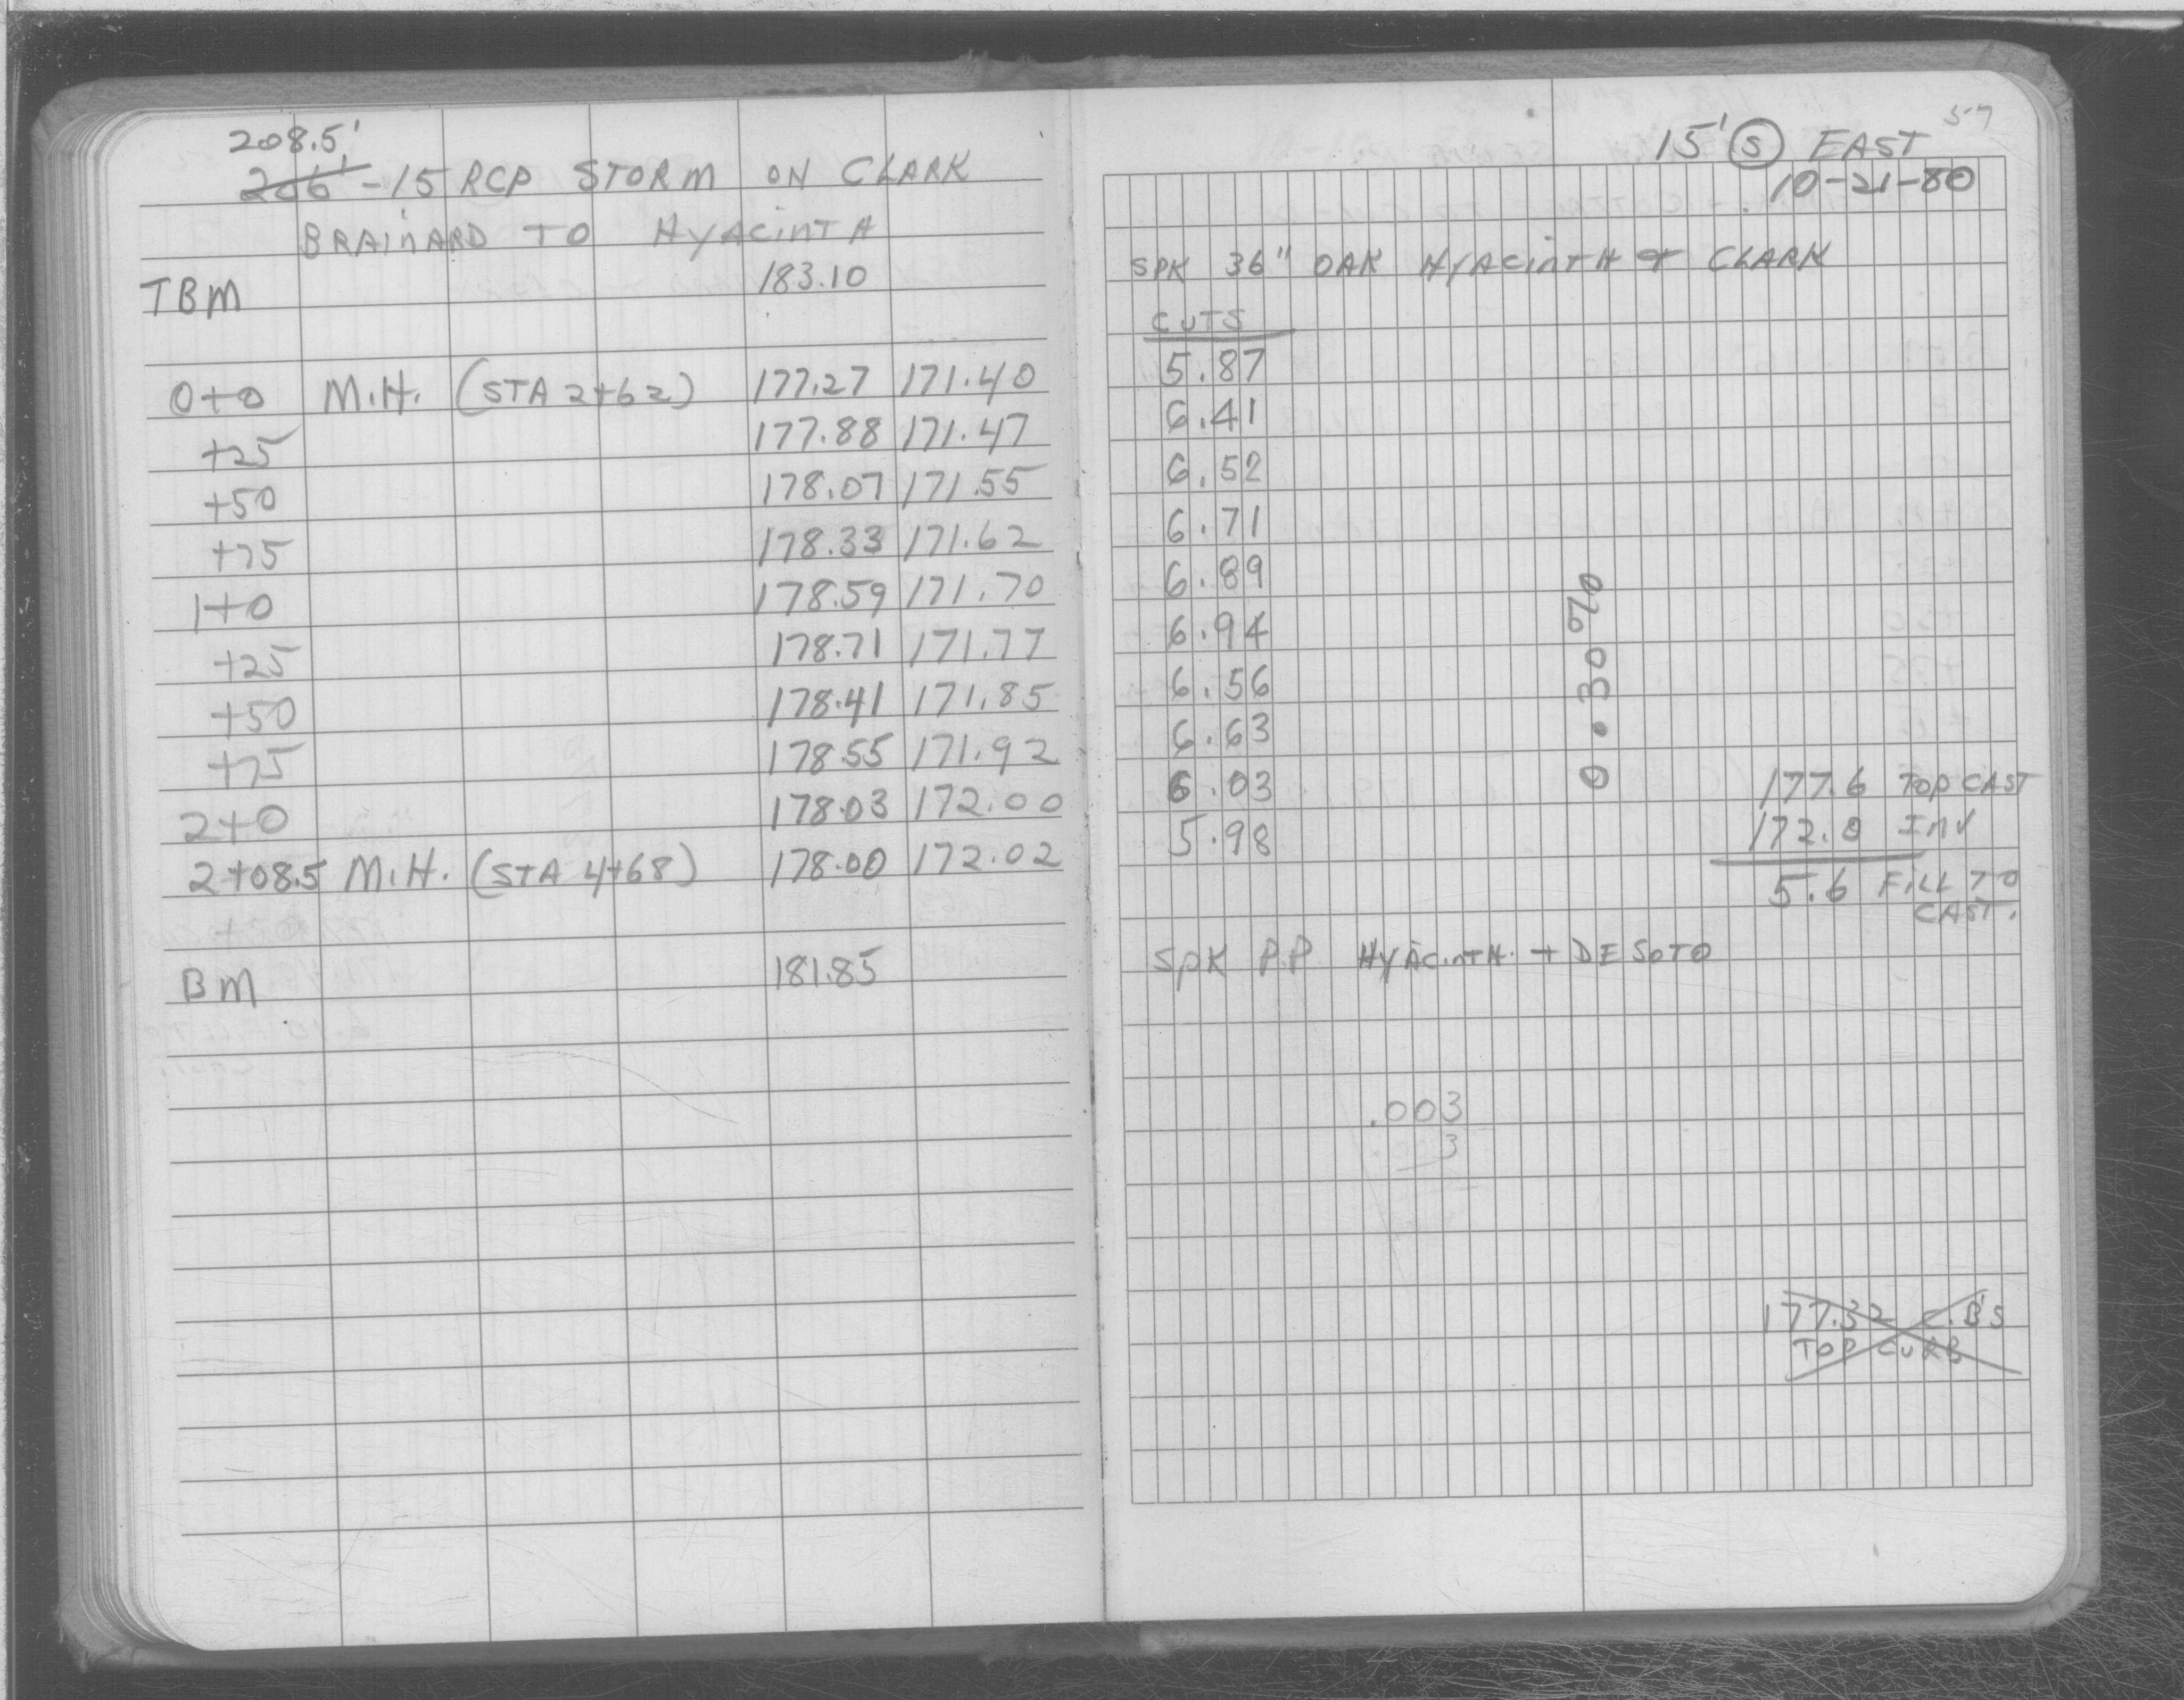 208.5'
206' - 15 RCP STORM ON CLARK
BRAINARD TO HYACINTH
TBM 183.10
0+0 M.H. (STA 2+62) 177.27 171.40
+25 177.88 171.47
+50 178.07 171.55
+75 178.33 171.62
1+0 178.59 171.70
+25 178.71 171.77
+50 178.41 171.85
+75 178.55 171.92
2+0 178.03 172.00
2+08.5 M.H. (STA 4+68) 178.00 172.02
BM 181.85
57
15' S EAST
10-21-80
SPK 36" OAK HYACINTH & CLARK
CUTS
5.87
6.41
6.52
6.71
6.89
6.94
6.56
6.63
6.03
5.98
0.30%
177.6 TOP CAST
172.0 INV
5.6 FILL TO
CAST.
SPK P.P HYACINTH. + DESOTO
.003
3
177.32 C.B'S
TOP CURB